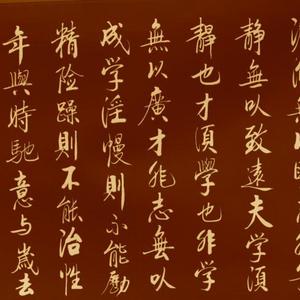 静無以致遠夫学須
靜也才須學也非学
無以廣才非志無以
成学淫慢則不能勵
精险躁則不能治性
年與時馳意与歲去